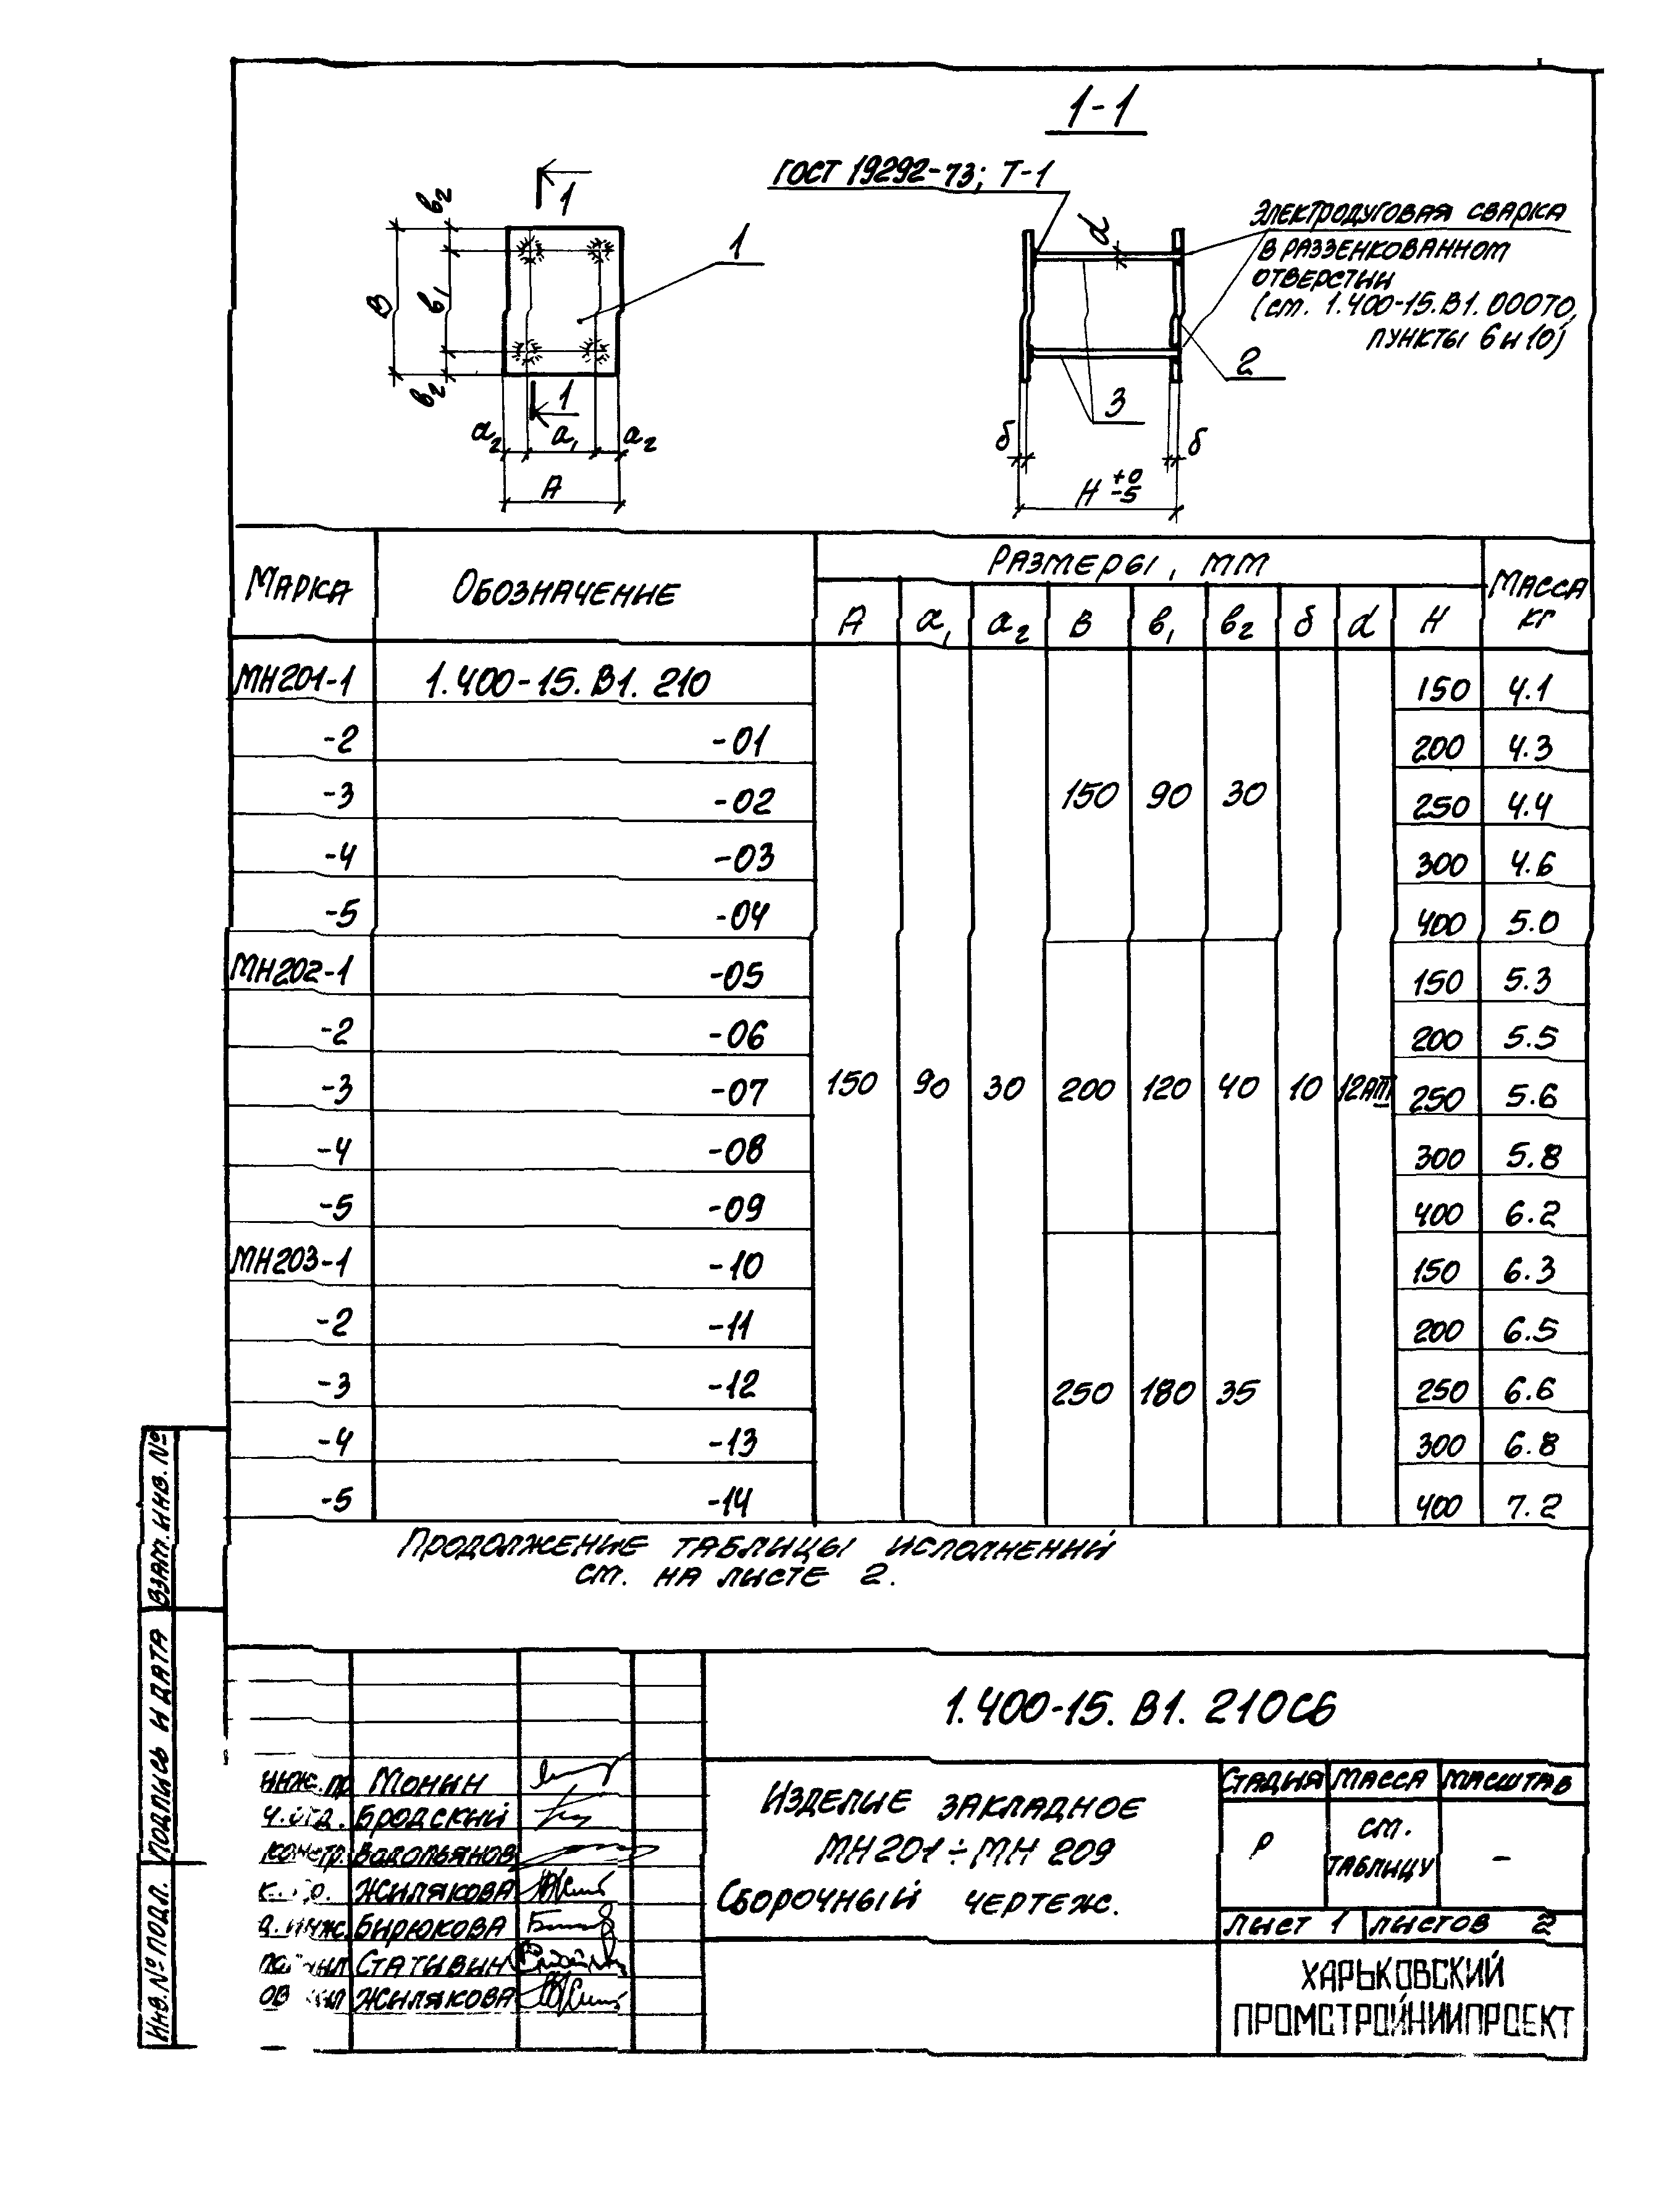 1-1
ГОСТ 19292-73; Т-1
ЭЛЕКТРОДУГОВАЯ СВАРКА
В РАЗЗЕНКОВАННОМ
ОТВЕРСТИИ
(СМ. 1.400-15.В1.000ТО,
ПУНКТЫ 6 и 10)
1
1
1
в2
в1
в2
В
а2 а1 а2
А
d
2
3
δ δ
Н +0 -5
МАРКА ОБОЗНАЧЕНИЕ РАЗМЕРЫ, ММ МАССА КГ
А а1 а2 В в1 в2 δ d Н
МН201-1 1.400-15.В1.210 150 4.1
-2 -01 200 4.3
-3 -02 150 90 30 250 4.4
-4 -03 300 4.6
-5 -04 400 5.0
МН202-1 -05 150 5.3
-2 -06 200 5.5
-3 -07 150 90 30 200 120 40 10 12АIII 250 5.6
-4 -08 300 5.8
-5 -09 400 6.2
МН203-1 -10 150 6.3
-2 -11 200 6.5
-3 -12 250 180 35 250 6.6
-4 -13 300 6.8
-5 -14 400 7.2
ПРОДОЛЖЕНИЕ ТАБЛИЦЫ ИСПОЛНЕНИЙ
СМ. НА ЛИСТЕ 2.
ВЗАМ. ИНВ. №
ПОДПИСЬ И ДАТА
ИНВ. № ПОДЛ.
1.400-15.В1.210СБ
ИНЖ. ПР. МОНИН
БРОДСКИЙ
ВОДОПЬЯНОВ
ЖИЛЯКОВА
БИРЮКОВА
СТАТИВИН
ЖИЛЯКОВА
ИЗДЕЛИЕ ЗАКЛАДНОЕ
МН201÷МН 209
СБОРОЧНЫЙ ЧЕРТЕЖ.
СТАДИЯ МАССА МАСШТАБ
Р СМ. ТАБЛИЦУ –
ЛИСТ 1 ЛИСТОВ 2
ХАРЬКОВСКИЙ
ПРОМСТРОЙНИИПРОЕКТ